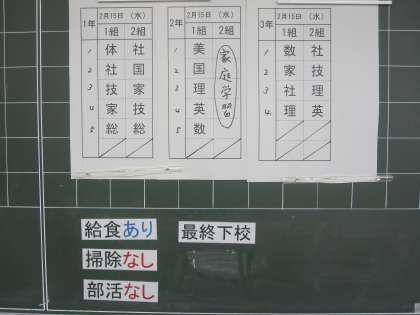 1年 2月15日 (水)
1組 2組
1 体 社
2 社 国
3 技 家
4 家 技
5 総 総
2年 2月15日 (水)
1組 2組
1 美 家庭学習
2 国
3 理
4 英
5 数
3年 2月15日 (水)
1組 2組
1 数 社
2 家 技
3 社 理
4. 理 英
給食あり
最終下校
掃除なし
部活なし